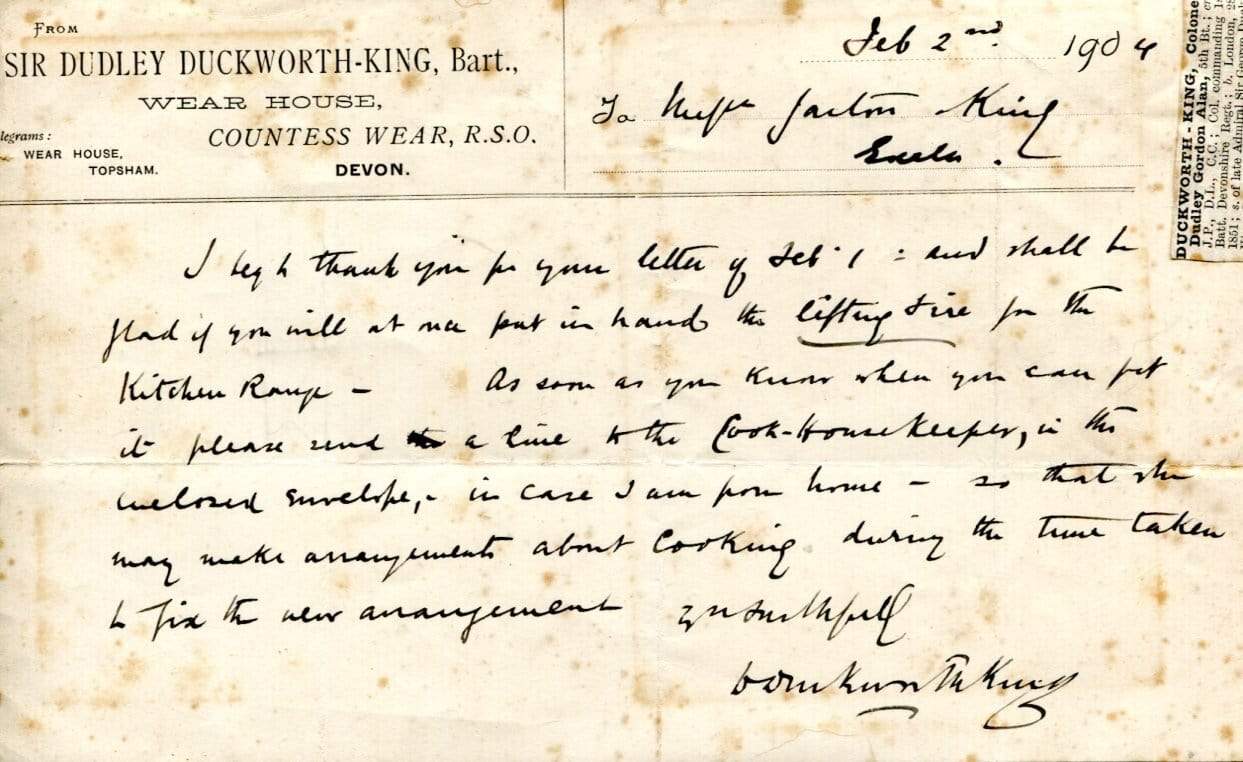 FROM
SIR DUDLEY DUCKWORTH-KING, Bart.,
WEAR HOUSE,
COUNTESS WEAR, R.S.O.
DEVON.
legrams:
WEAR HOUSE,
TOPSHAM.
Feb 2nd. 1904
To Messrs Garton King
Exeter.
I beg to thank you for your letter of Feb 1: and shall be
glad if you will at once put in hand the lifting Fire for the
Kitchen Range - As soon as you know when you can put
it please send a line to the Cook-Housekeeper, in the
enclosed envelope, - in case I am from home - so that she
may make arrangements about cooking during the time taken
to fix the new arrangement yrs faithfully
D Duckworth King
DUCKWORTH-KING, Colone
Dudley Gordon Alan, 5th Bt.;
J.P., D.L., C.C.; Col. commanding
Batt. Devonshire Regt.; b. London,
1851; s. of late Admiral Sir George